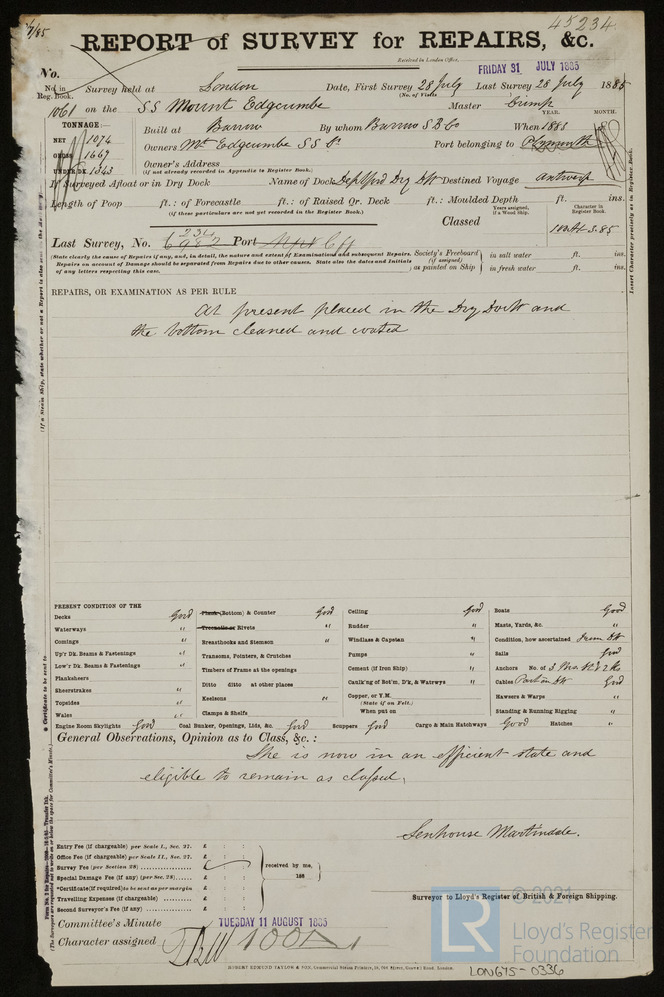 45234
7/85
REPORT of SURVEY for REPAIRS, &c.
Received in London Office,
FRIDAY 31 JULY 1885
No.
No. in Reg. Book. Survey held at London Date, First Survey 28 July Last Survey 28 July 1885
(No. of Visits )
1061 on the SS Mount Edgcumbe Master
TONNAGE:— YEAR. MONTH.
NET 1074 Built at Barrow By whom Barrow S B Co When 1883
GROSS 1667 Owners Mt Edgcumbe SS Co Port belonging to Plymouth
UNDER DK. 1343 Owner's Address
(if not already recorded in Appendix to Register Book.)
If Surveyed Afloat or in Dry Dock Name of Dock Deptford Dry Dk Destined Voyage Antwerp
Length of Poop ft.: of Forecastle ft.: of Raised Qr. Deck ft.: Moulded Depth ft. ins.
(if these particulars are not yet recorded in the Register Book.)
Years assigned, if a Wood Ship.
Character in Register Book.
Classed 100A1 5.85
Last Survey, No. 6982 234 Port
(State clearly the cause of Repairs if any, and, in detail, the nature and extent of Examinations and subsequent Repairs.
Repairs on account of Damage should be separated from Repairs due to other causes. State also the dates and Initials
of any letters respecting this case.
Society's Freeboard (if assigned) as painted on Ship
in salt water ft. ins.
in fresh water ft. ins.
REPAIRS, OR EXAMINATION AS PER RULE
At present placed in the Dry Dock and
the bottom cleaned and coated
PRESENT CONDITION OF THE
Decks Good
Waterways "
Comings "
Up'r Dk. Beams & Fastenings "
Low'r Dk. Beams & Fastenings "
Planksheers
Sheerstrakes "
Topsides "
Wales "
Plank (Bottom) & Counter Good
Treenails or Rivets "
Breasthooks and Stemson "
Transoms, Pointers, & Crutches
Timbers of Frame at the openings
Ditto ditto at other places
Keelsons "
Clamps & Shelfs
Ceiling Good
Rudder "
Windlass & Capstan "
Pumps "
Cement (if Iron Ship) "
Caulk'ng of Bot'm, D'k, & Watrwys "
Copper, or Y.M.
(State if on Felt.)
When put on
Boats Good
Masts, Yards, &c. "
Condition, how ascertained From Dk
Sails Good
Anchors No. of 3
Cables Part on Dk Good
Hawsers & Warps "
Standing & Running Rigging "
Engine Room Skylights Good Coal Bunker, Openings, Lids, &c. Good Scuppers Good Cargo & Main Hatchways Good Hatches "
General Observations, Opinion as to Class, &c.:
She is now in an efficient state and
eligible to remain as classed.
Senhouse Martindale.
Entry Fee (if chargeable) per Scale I., Sec. 27. £ : :
Office Fee (if chargeable) per Scale II., Sec. 27. £ : :
Survey Fee (per Section 28) £ : :
Special Damage Fee (if any) (per Sec. 28) £ : :
*Certificate (if required) to be sent as per margin £ : :
Travelling Expenses (if chargeable) £ : :
Second Surveyor's Fee (if any) £ : :
received by me,
188
Surveyor to Lloyd's Register of British & Foreign Shipping.
Committee's Minute TUESDAY 11 AUGUST 1885
Character assigned 100A1
ROBERT EDMUND TAYLOR & SON, Commercial Steam Printers
© 2021
LR
Lloyd's Register
Foundation
LON675-0336
Insert Character precisely as in Register Book.
* Certificate to be sent to